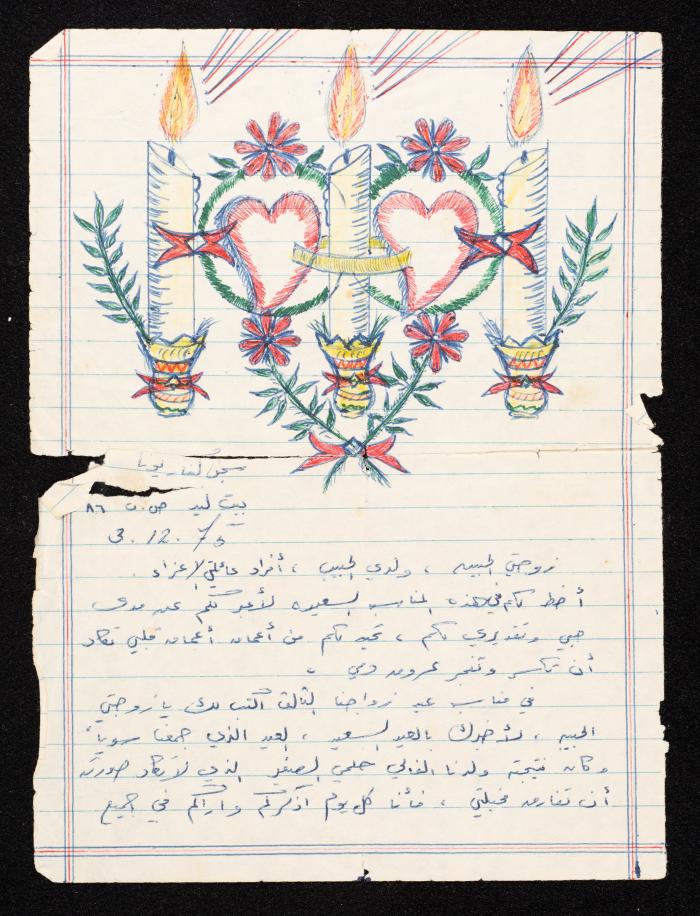 سجن كفار يونا
بيت ليد ص.ب ٨٦
3.12.75
زوجتي الحبيبه ، ولدي الحبيب ، أفراد عائلتي الاعزاء .
أخط لكم في هذه المناسبه السعيده لأعبر لكم عن مدى
حبي وتقديري لكم ، تحيه لكم من أعماق أعماق قلبي تكاد
أن تكسر وتفجر عروق دمي .
في مناسبه عيد زواجنا الثالث اكتب لك يا زوجتي
الحبيبه ، لأخبرك بالعيد السعيد ، العيد الذي جمعنا سوياً
وكان نتيجته ولدنا الغالي حلمي الصغير الذي لا تكاد صورته
أن تفارق مخيلتي ، فأنا كل يوم اذكركم واراكم في جميع